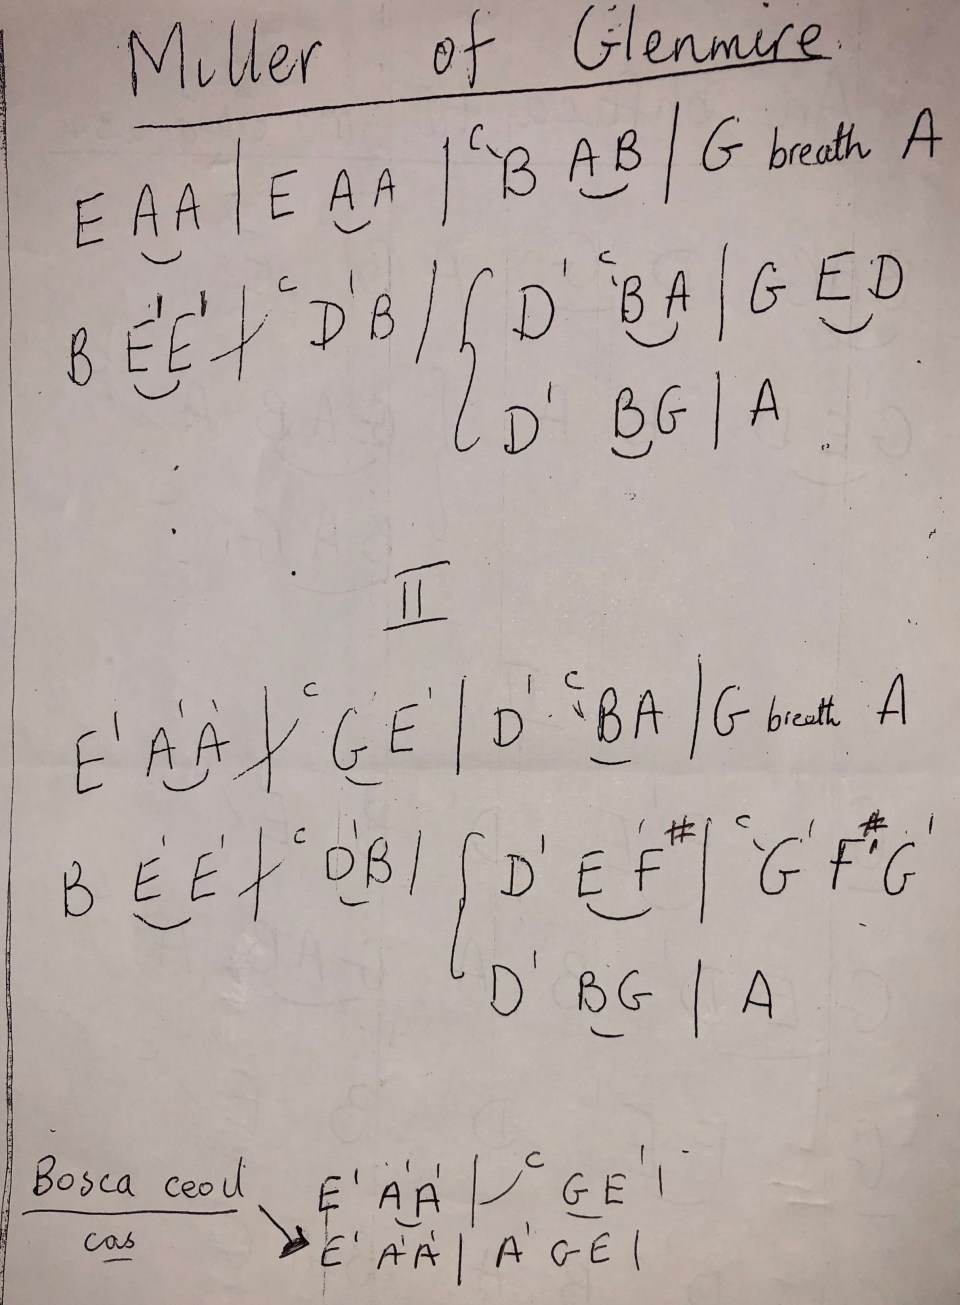 Miller of Glenmire.
E A A | E A A | C B A B | G breath A
B E' E' | C D' B | { D' C B A | G E D
D' B G | A
II
E' A' A' | C G E' | D' C B A | G breath A
B E' E' | C D' B | { D' E F'# | C G' F#' G'
D' B G | A
E' A' A' | C G E' |
Bosca ceoil
cas
E' A' A' | A' G E |